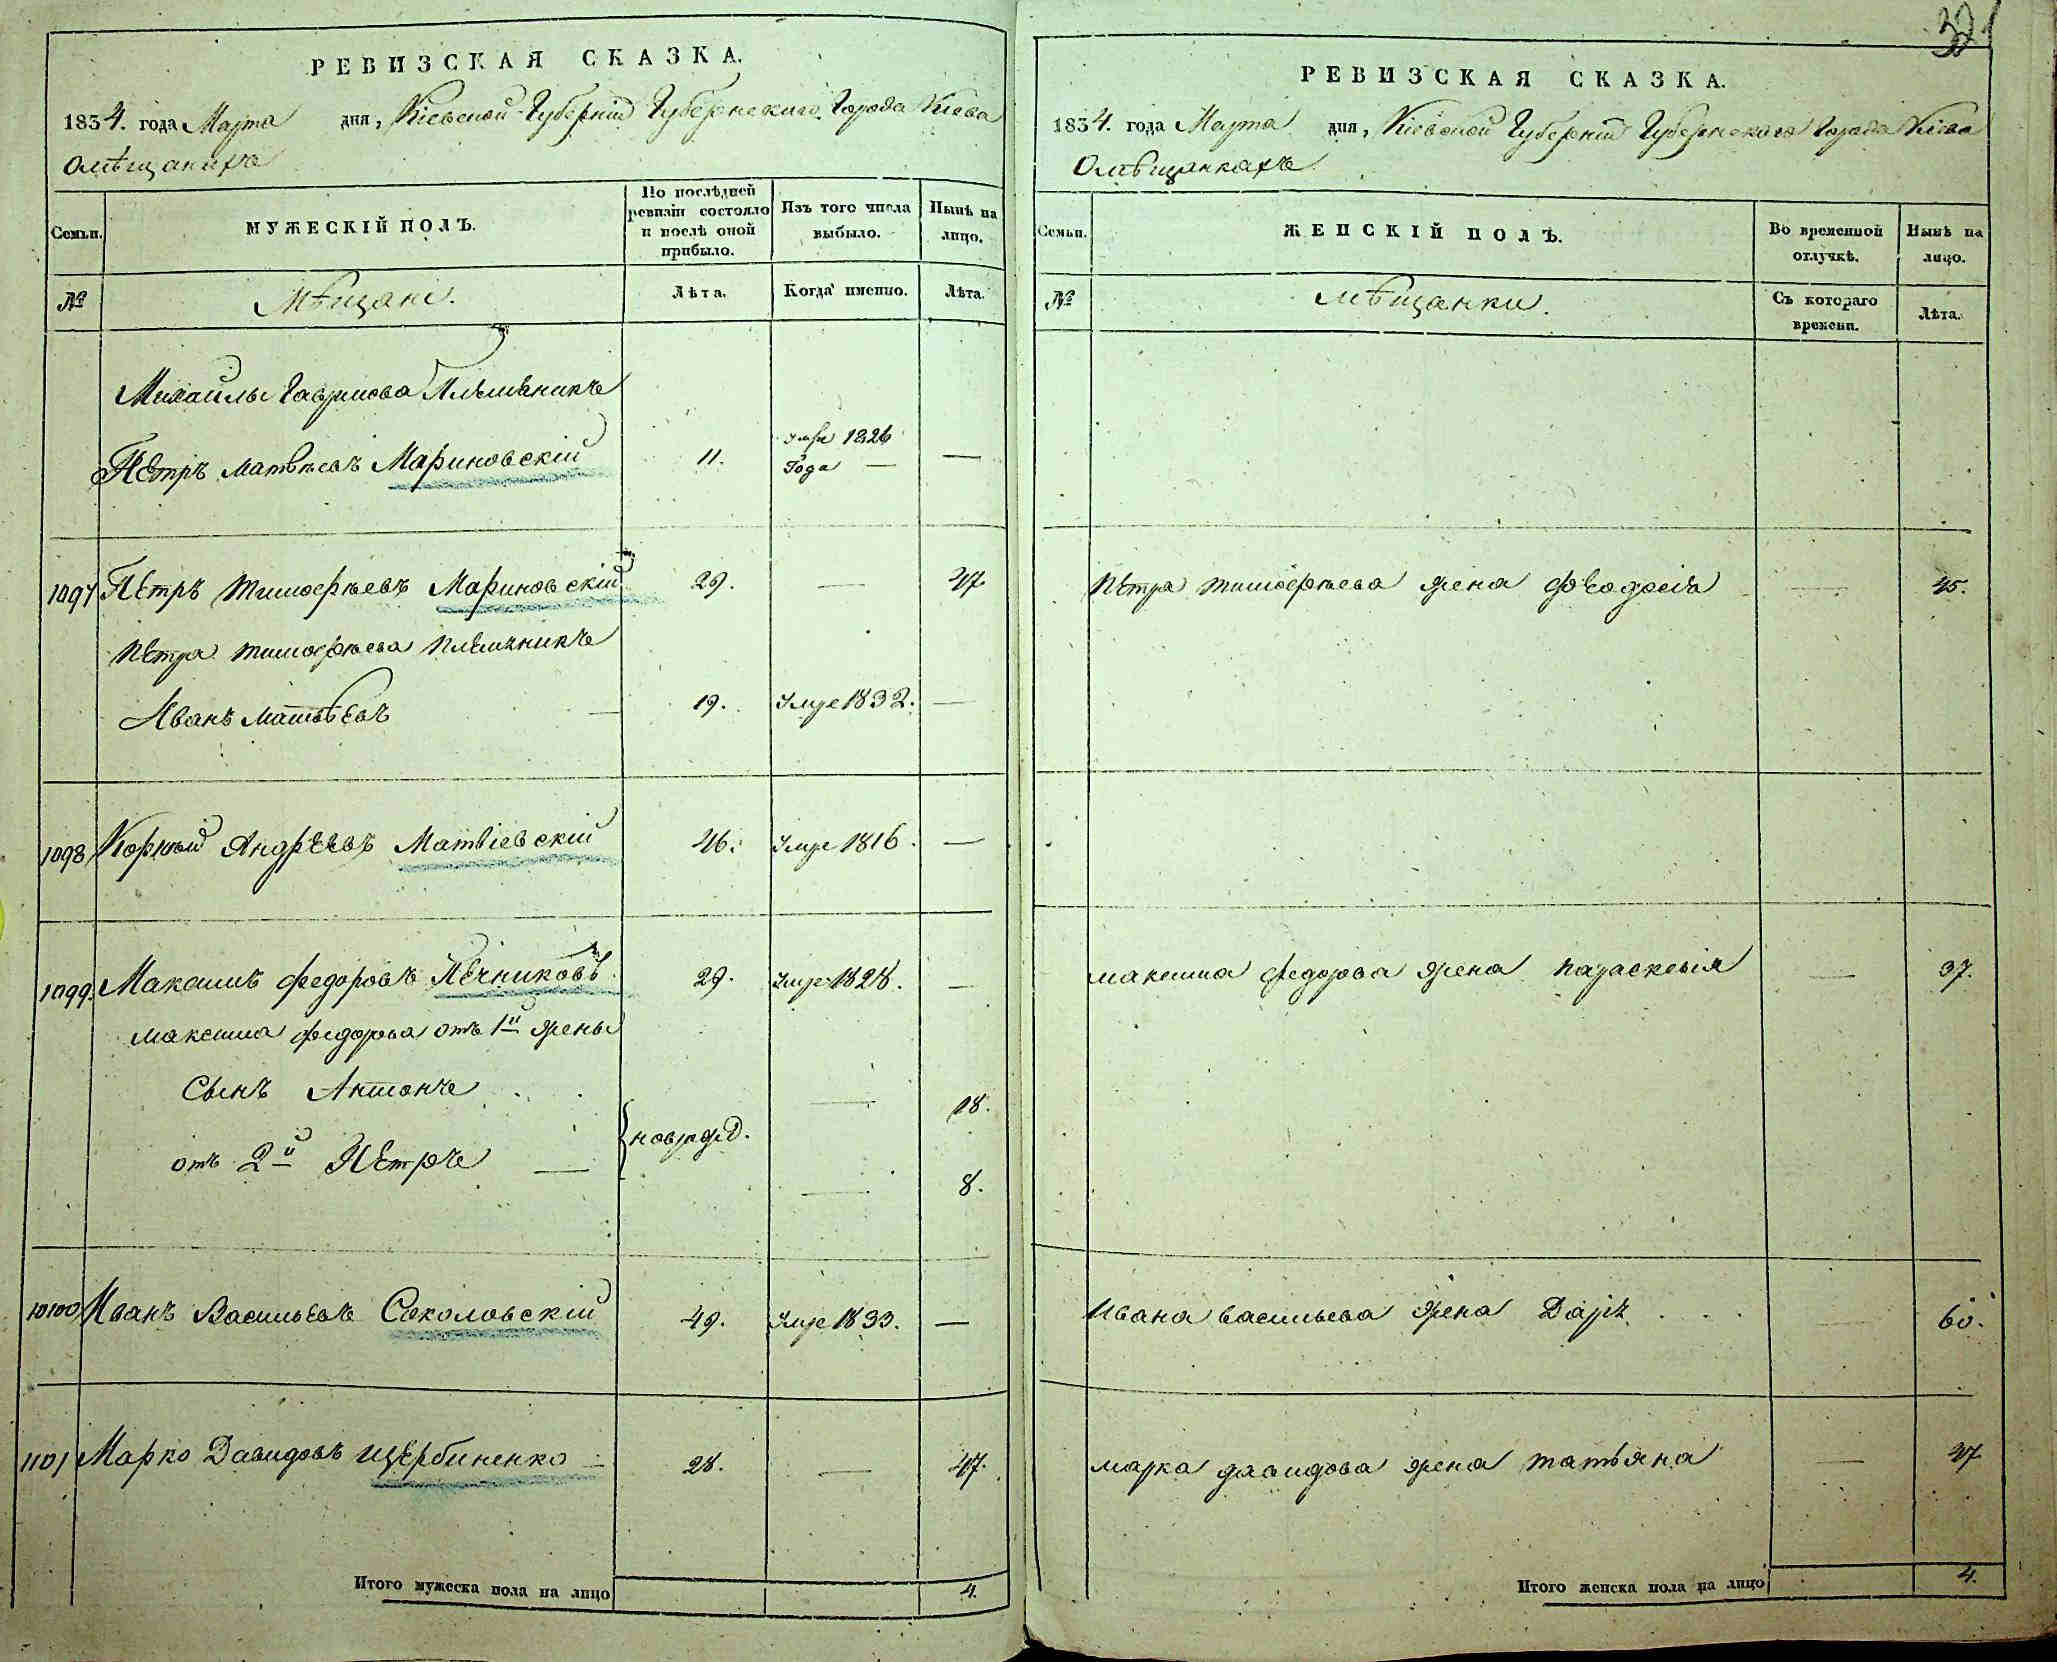 РЕВИЗСКАЯ СКАЗКА.
1834. года Марта дня, Кіевской Губерніи Губернскаго Города Кіева
О мѣщанахъ
Семьи.
МУЖЕСКІЙ ПОЛЪ.
По послѣдней ревизіи состояло и послѣ оной прибыло.
Изъ того числа выбыло.
Нынѣ на лицо.
№
Мѣщане.
Лѣта.
Когда именно.
Лѣта.
Михайлы Гаврилова Племеникъ
Петръ Матвѣевъ Мариновскій 11. умре 1826 Года — —
1097 Петръ Тимофѣевъ Мариновскій 29. — 47.
Петра Тимофѣева племяникъ
Иванъ Матвѣевъ — 19. Умре 1832. —
1098 Корнѣй Андреевъ Матвіевскій 46. Умре 1816. —
1099. Максимъ Федоровъ Печниковъ 29. Умре 1828. —
Максима Федорова отъ 1й жены
Сынъ Антонъ — 18.
новрожд.
отъ 2й Петръ — — 8.
10100 Иванъ Васильевъ Соколовскій 49. Умре 1833. —
1101 Марко Давидовъ Щербиненко — 28. — 47.
Итого мужеска пола на лицо 4.
321
РЕВИЗСКАЯ СКАЗКА.
1834. года Марта дня, Кіевской Губерніи Губернскаго Города Кіева
О мѣщанкахъ
Семьи.
ЖЕНСКІЙ ПОЛЪ.
Во временной отлучкѣ.
Нынѣ на лицо.
№
Мѣщанки.
Съ котораго времени.
Лѣта.
Петра Тимофѣева жена Феодосія — 45.
Максима Федорова жена Параскевія — 37.
Ивана Васильева жена Дарья . . . — 60.
Марка Давидова жена Татьяна — 47
Итого женска пола на лицо 4.